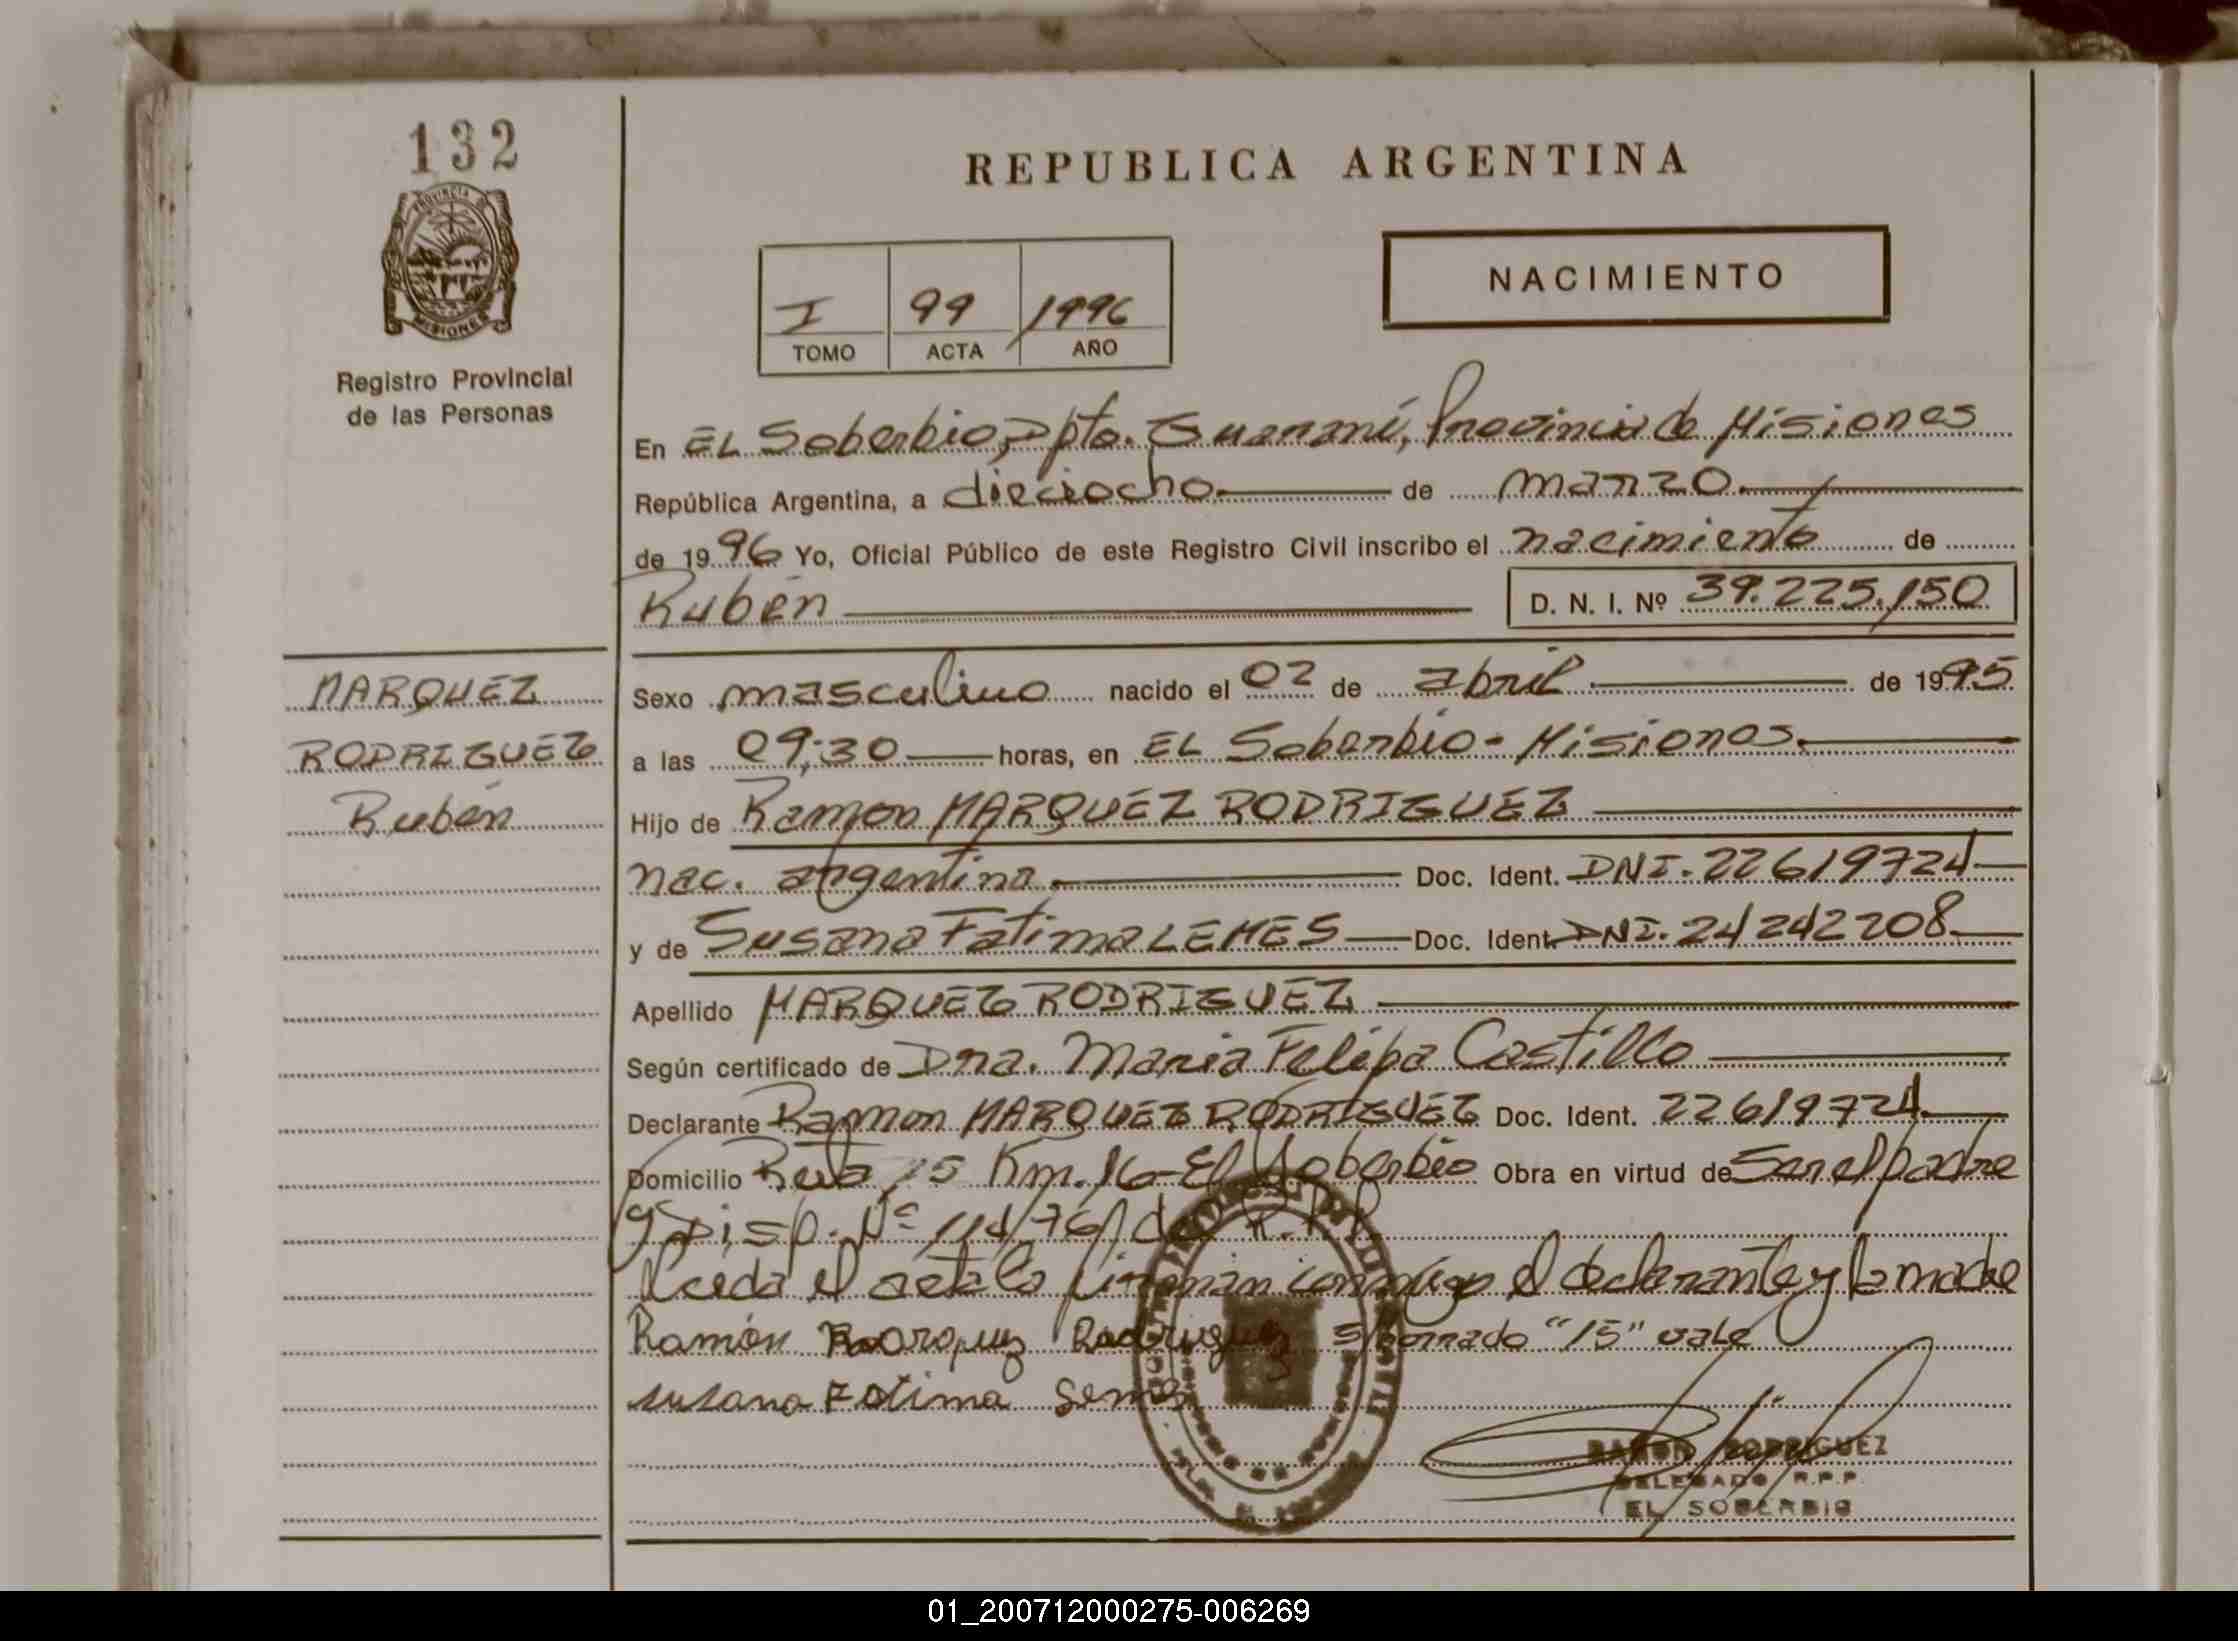 132
REPUBLICA ARGENTINA
PROVINCIA DE
MISIONES
NACIMIENTO
I 99 1996
TOMO ACTA AÑO
Registro Provincial
de las Personas
En EL Soberbio, Dpto. Guaraní, Provincia de Misiones
República Argentina, a dieciocho.— de marzo.—
de 1996 Yo, Oficial Público de este Registro Civil inscribo el nacimiento de
Rubén — D. N. I. Nº 39.225.150
MARQUEZ
RODRIGUEZ
Rubén
Sexo masculino nacido el 02 de abril.— de 1995
a las 09:30 — horas, en EL Soberbio - Misiones.—
Hijo de Ramon MARQUEZ RODRIGUEZ —
nac. argentina.— Doc. Ident. DNI. 22619724—
y de Susana Fatima LEMES — Doc. Ident. DNI. 24242208.—
Apellido MARQUEZ RODRIGUEZ —
Según certificado de Dra. Maria Felipa Castillo —
Declarante Ramon MARQUEZ RODRIGUEZ Doc. Ident. 22619724.—
Domicilio Ruta 15 Km. 16-El Soberbio Obra en virtud de Ser el padre
y Disp. Nº 114/76/ de R.P.P.
Leeda el acta la firman conmigo el declarante y la madre
Ramón Marquez Rodriguez s/borrado "15" vale
susana Fatima Lemes
RAMON RODRIGUEZ
DELEGADO R.P.P.
EL SOBERBIO
01_200712000275-006269